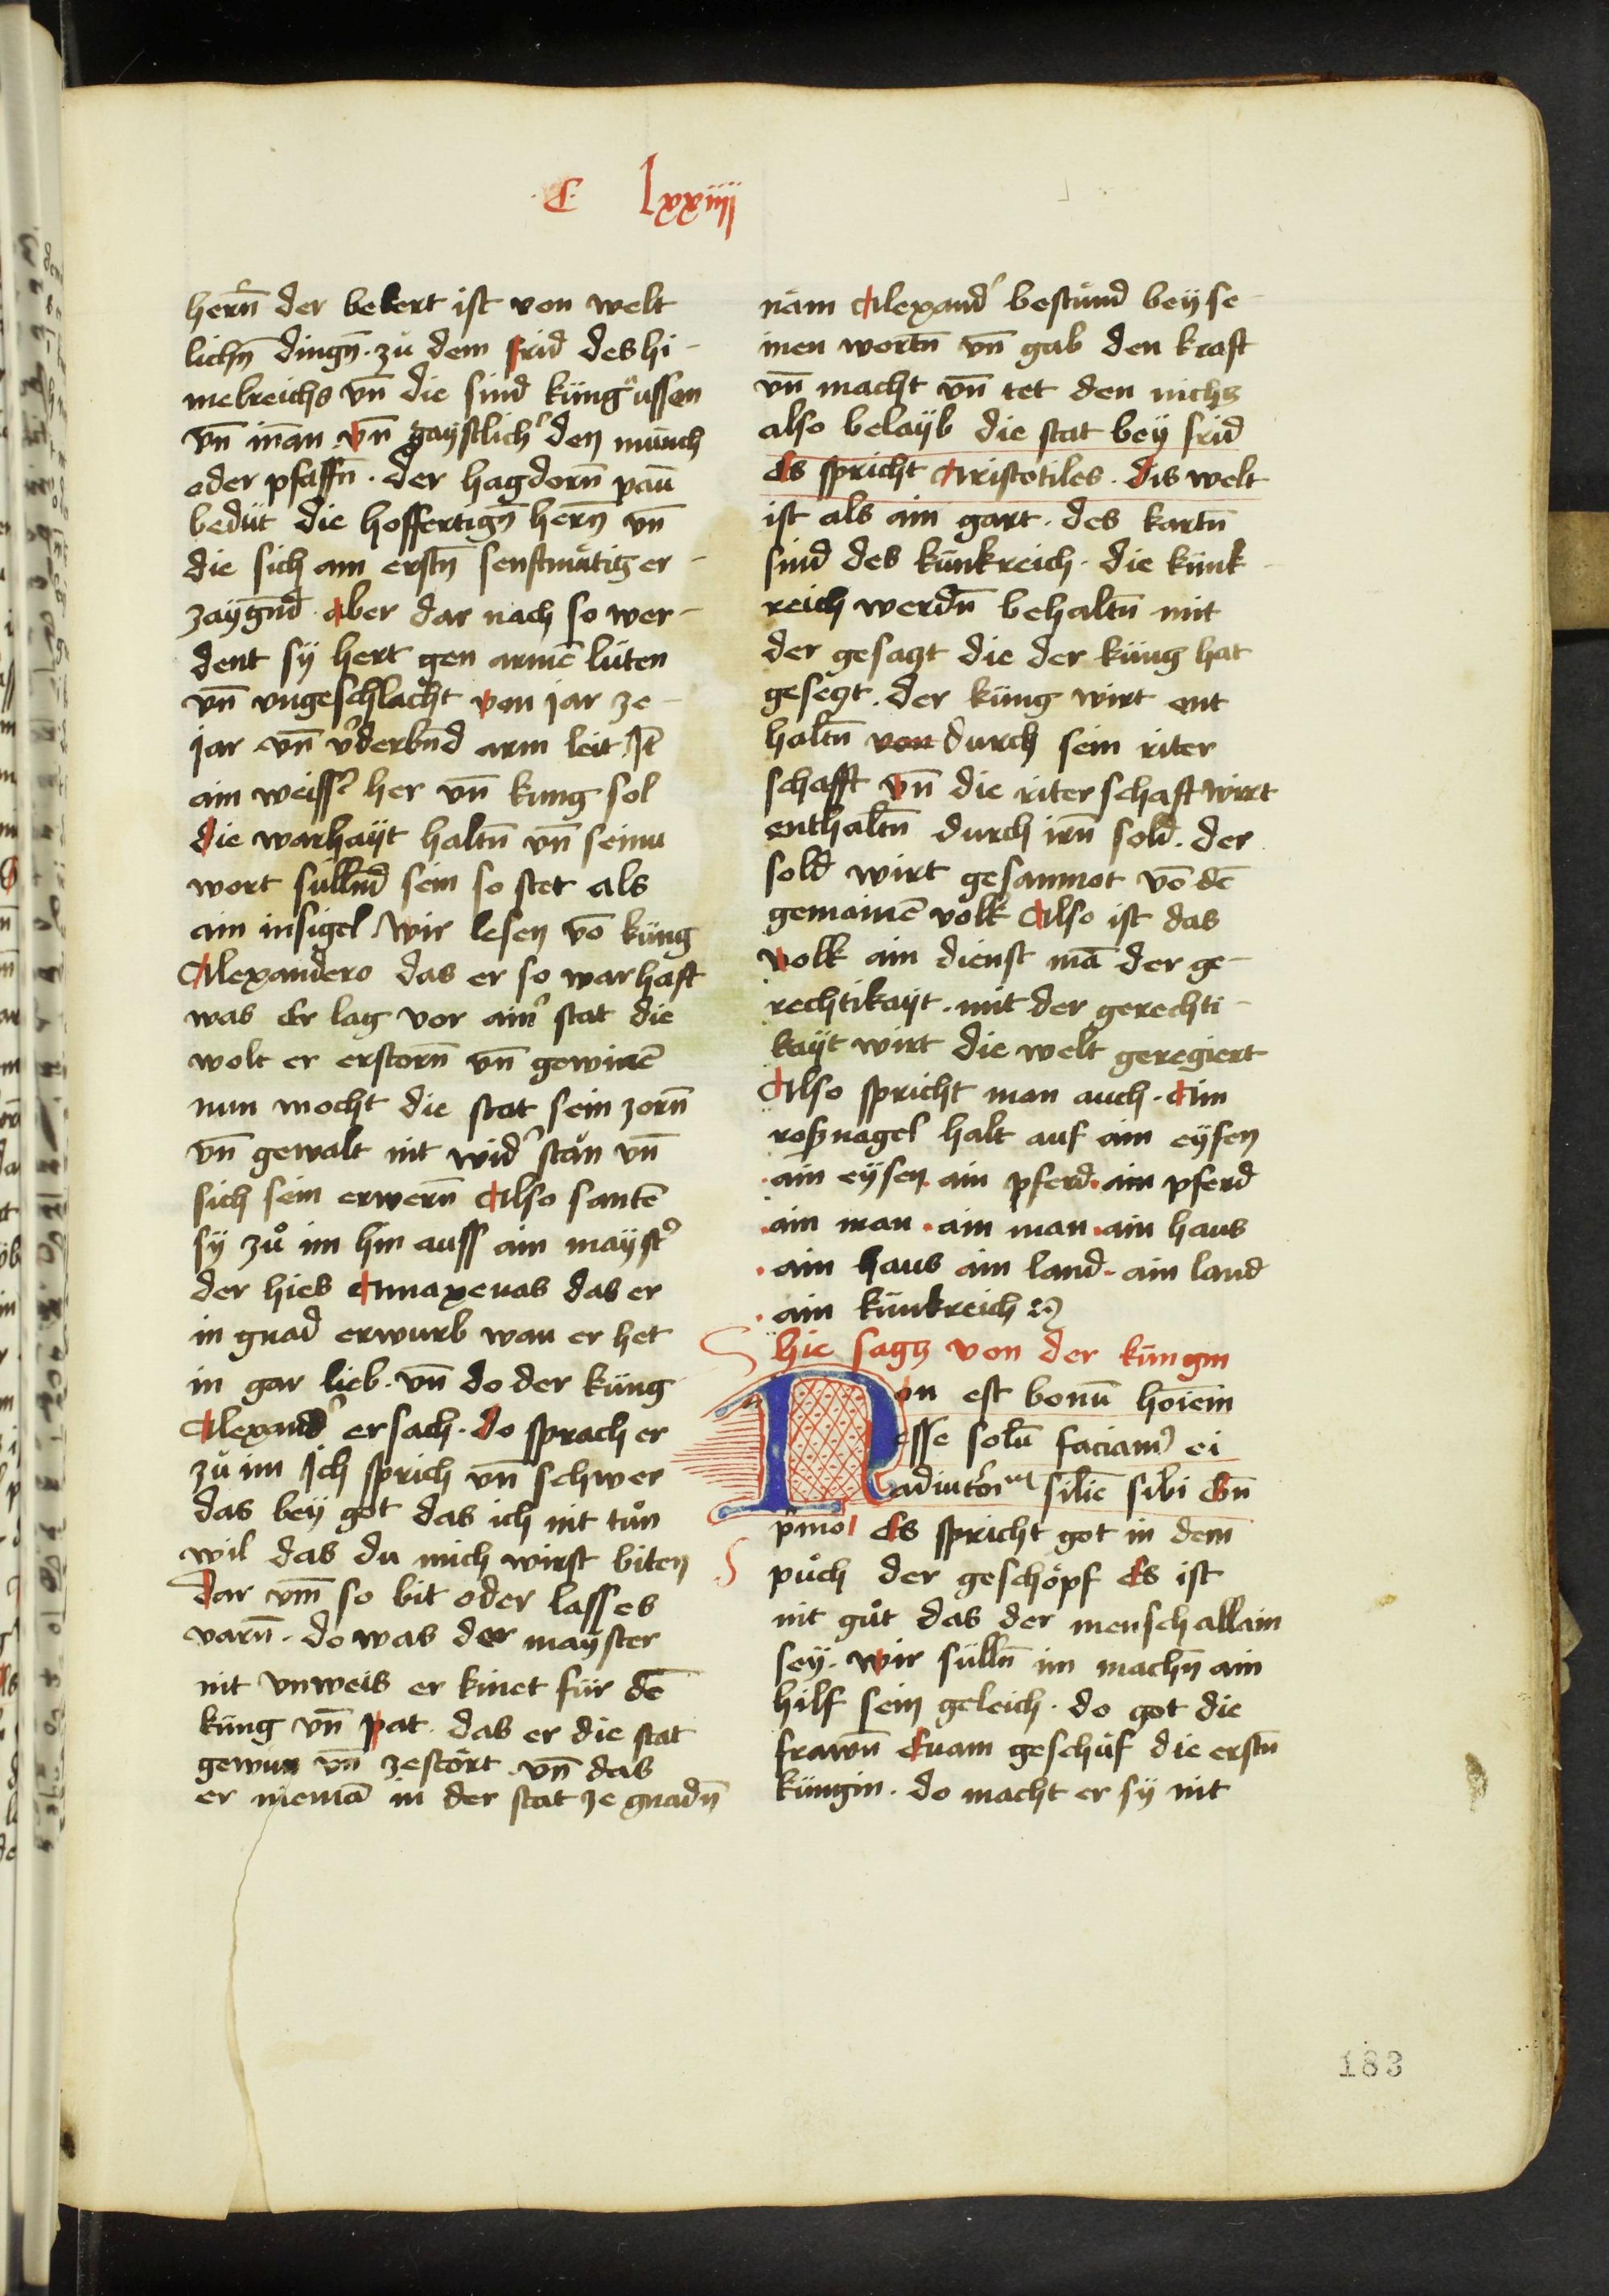 C lxxiiij
hern̄ der bekert ist von welt
lichn̄ dingn̄ · zů dem frid des hi-
melreichs vn̄ die sind küng aussen
vn̄ inan vn̄ gaystlich' den münch
oder pfaffn̄ · der hagdorn̄ paū
bedüt die hoffertign̄ hern̄ vn̄
die sich am erstn̄ senftmütig er-
zaygn̄d · Aber dar nach so wer-
dent sÿ hert gen armē lüten
vn̄ vngeschlacht von jar ze
jar vn̄ v'derbn̄d arm leit Itē
ain weiss' her vn̄ kung sol
die warhaÿt haltn̄ vn̄ seinu
wort sülln̄d sein so stet als
ain insigel · Wir lesen vō küng
Alexandero das er so warhaft
was Er lag vor ain' stat die
wolt er erstorn̄ vn̄ gewinē
nun mocht die stat sein zorn̄
vn̄ gewalt nit wid' stän vn̄
sich sein erwern̄ Also santē
sÿ zů im hin auss ain mayst'
der hies Anaxenas das er
in gnad erwurb wan er het
in gar lieb · vn̄ do der küng
Alexand' ersach · do sprach er
zů im Ich sprich vn̄ schwer
das beÿ got das ich nit tůn
wil das du mich wirst biten
dar vm̄ so bit oder lass es
varn̄ · do was der mayster
nit vnweis er kniet für dē
küng vn̄ pat · das er die stat
gewün vn̄ zestört · vn̄ das
er niemā in der stat ze gnadn̄
näm Alexand' bestünd beÿ se-
inen wortn̄ vn̄ gab den kraft
vn̄ macht vn̄ tet den nichs
also belayb die stat beÿ frid
Es spricht Aristotiles · Dis welt
ist als ain gart · des kartn̄
sind des künkreich · die künk-
reich werdn̄ behaltn̄ mit
der gesaczt die der küng hat
geseczt · der küng wirt ent
haltn̄ von durch sein riter
schafft vn̄ die riterschaft wirt
enthaltn̄ durch irn̄ sold · der
sold wirt gesammot vō dē
gemainē volk Also ist das
volk ain dienst mā der ge-
rechtikaÿt · mit der gerechti-
kaÿt wirt die welt geregiert
Also spricht man auch · Ain
roßnagel halt auf ain eÿsen
· ain eÿsen ain pferd · ain pferd
· ain man · ain man · ain haus
· ain haus ain land · ain land
· ain künkreich
hie sagt von der küngin
Non est bonū hoīem
esse solū faciam' ei
adiutor' silē sibi Gn̄
p̄mo Es spricht got in dem
půch der geschöpf Es ist
nit gůt das der mensch allain
seÿ · Wir sülln̄ im machn̄ ain
hilf sein geleich · do got die
frawn̄ Euam geschůf die erstn̄
küngin · do macht er sÿ nit
183